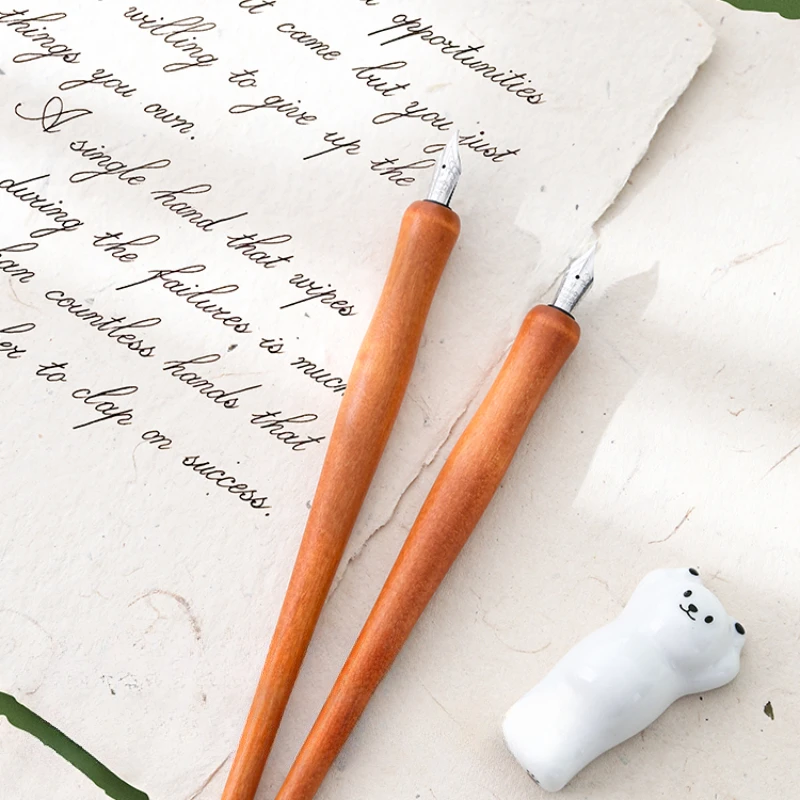 opportunities
it came but you just
willing to give up the
things you own.
A single hand that wipes
during the failures is
countless hands that
to clap on success.